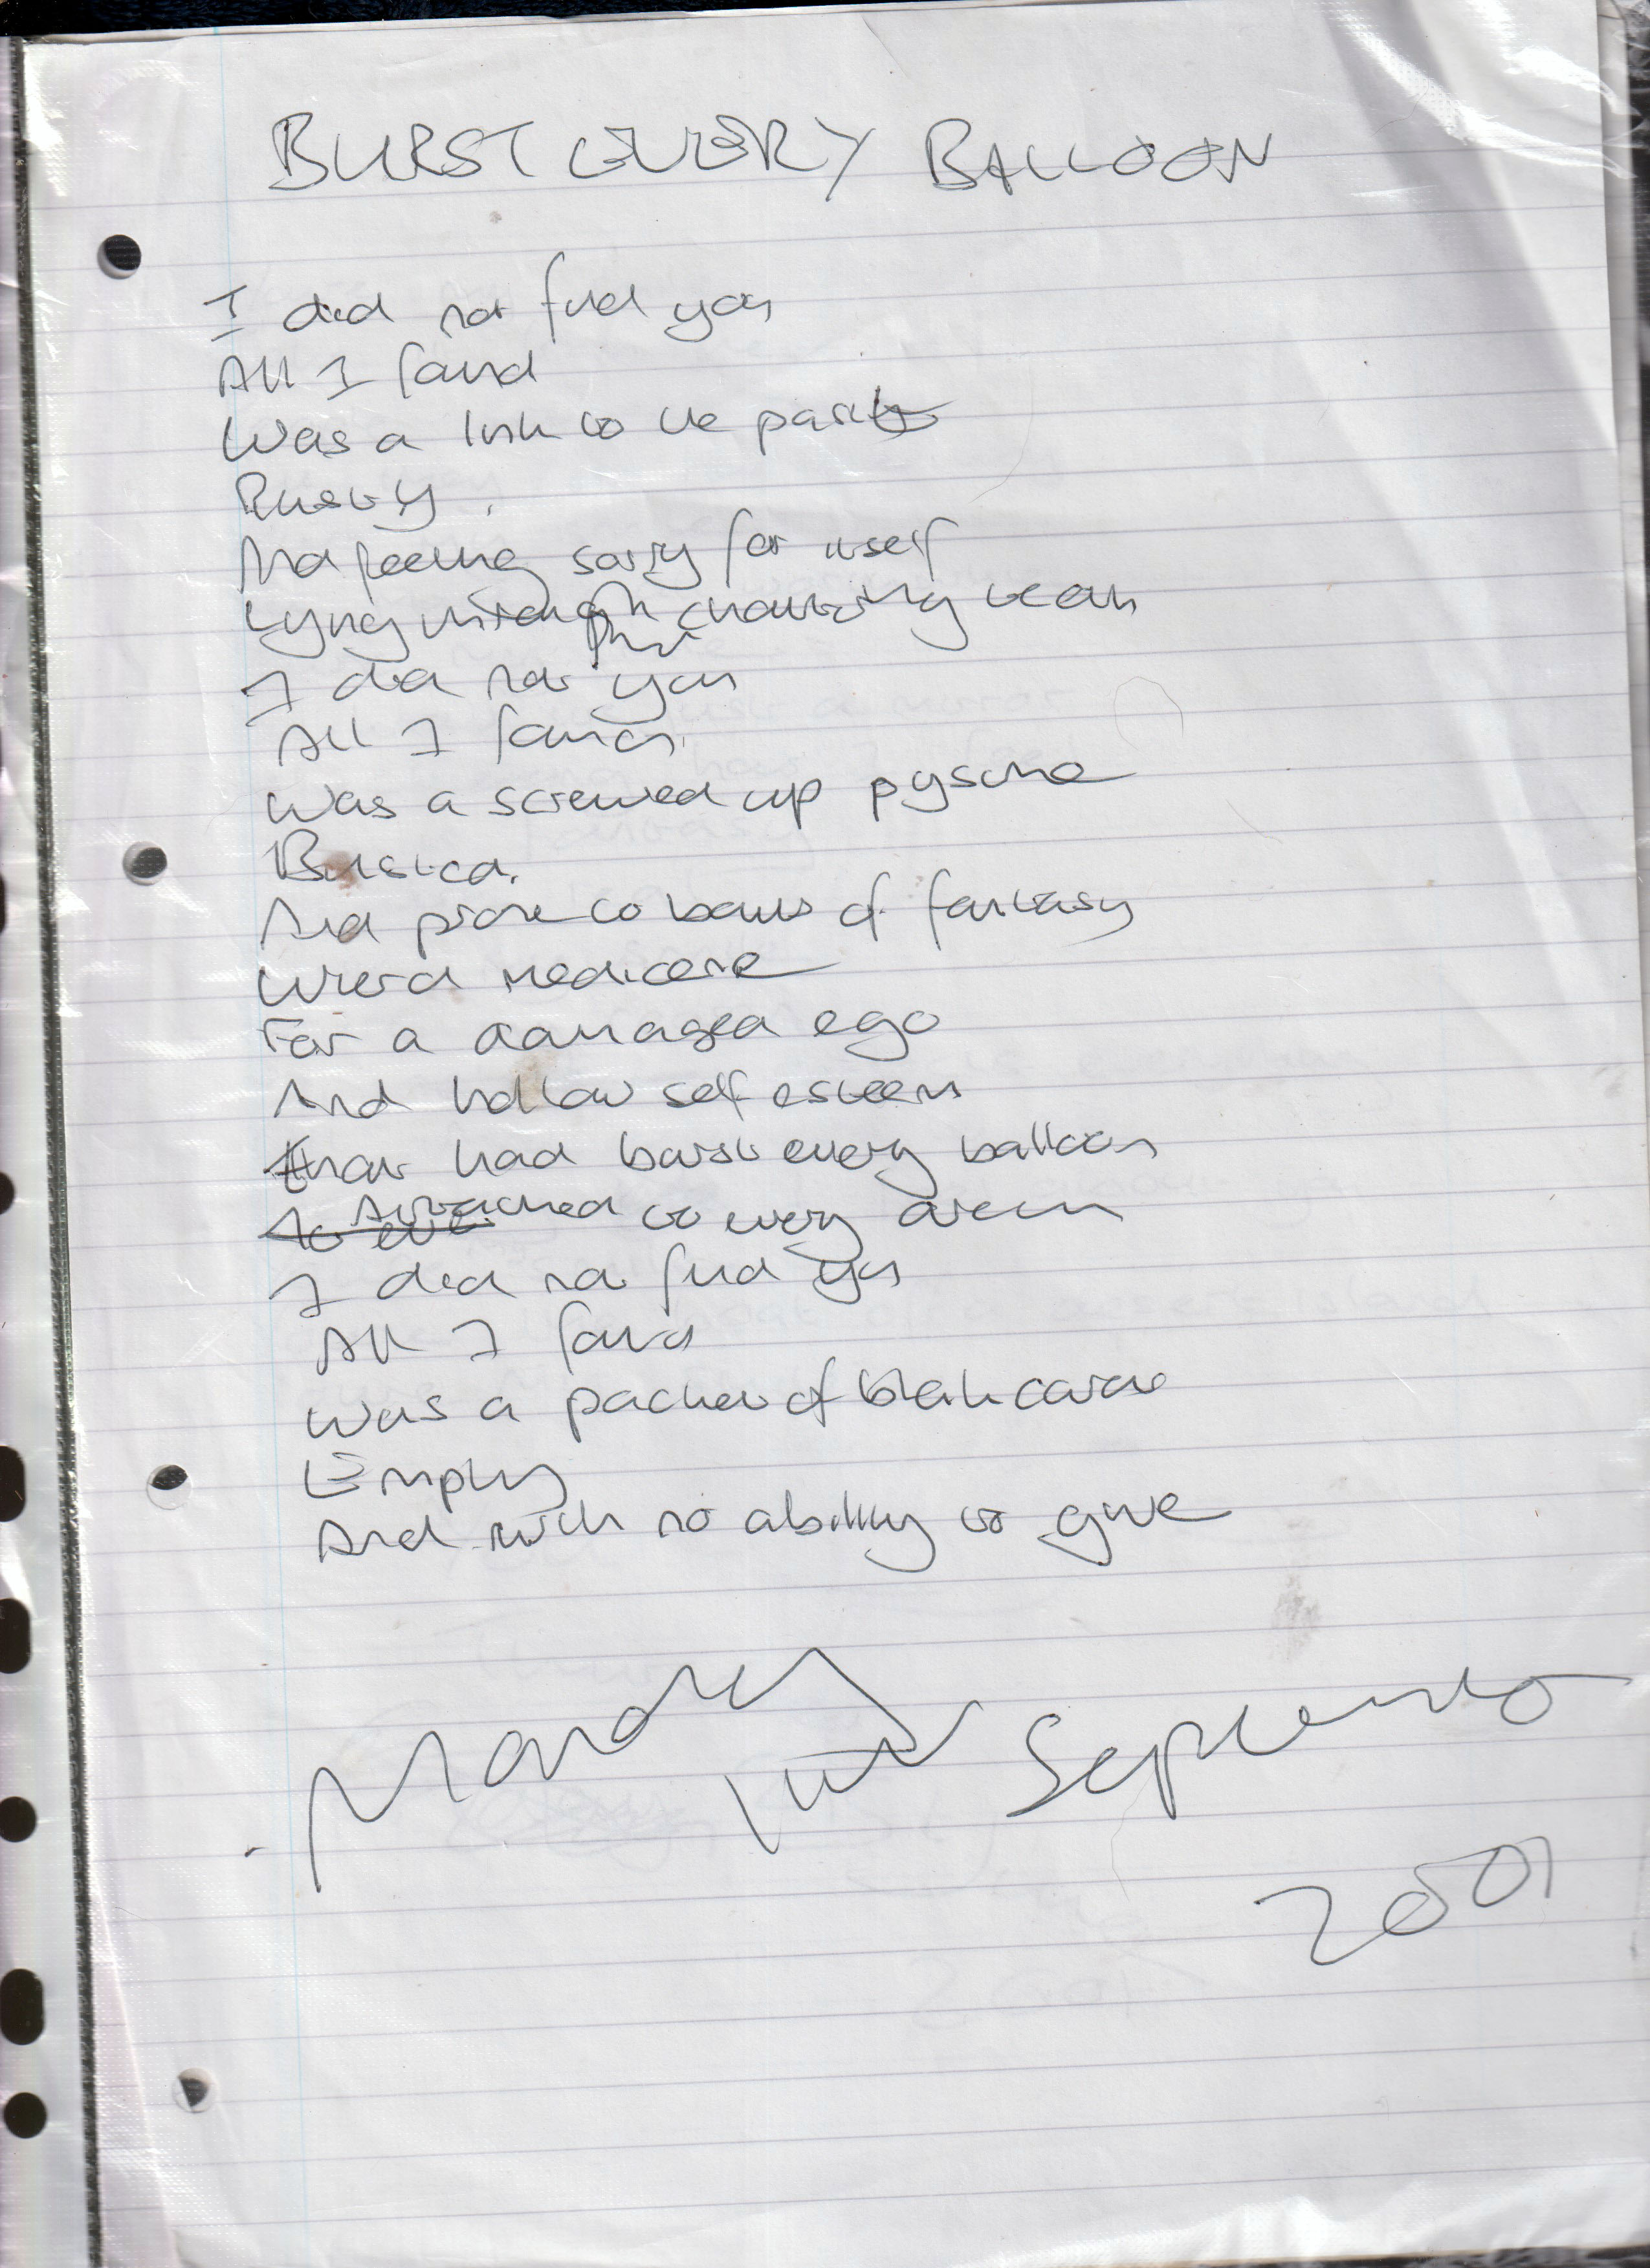 BURST EVERY BALLOON
I did not find you
All I found
Was a link to the past
Rusty.
And feeling sorry for itself
Lying through chattering teeth
I did not find you
All I found
Was a screwed up pysche
Busted.
And prone to bouts of fantasy
Wierd medicene
For a damaged ego
And hollow self esteem
that had burst every balloon
Attached to every dream
I did not find you
All I found
Was a packet of blank
Empty
And with no ability to give
September
2001